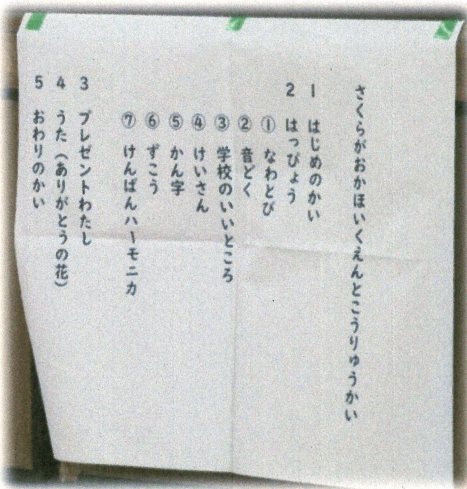 さくらがおかほいくえんとこうりゅうかい
1 はじめのかい
2 はっぴょう
① なわとび
② 音どく
③ 学校のいいところ
④ けいさん
⑤ かん字
⑥ ずこう
⑦ けんばんハーモニカ
3 プレゼントわたし
4 うた（ありがとうの花）
5 おわりのかい